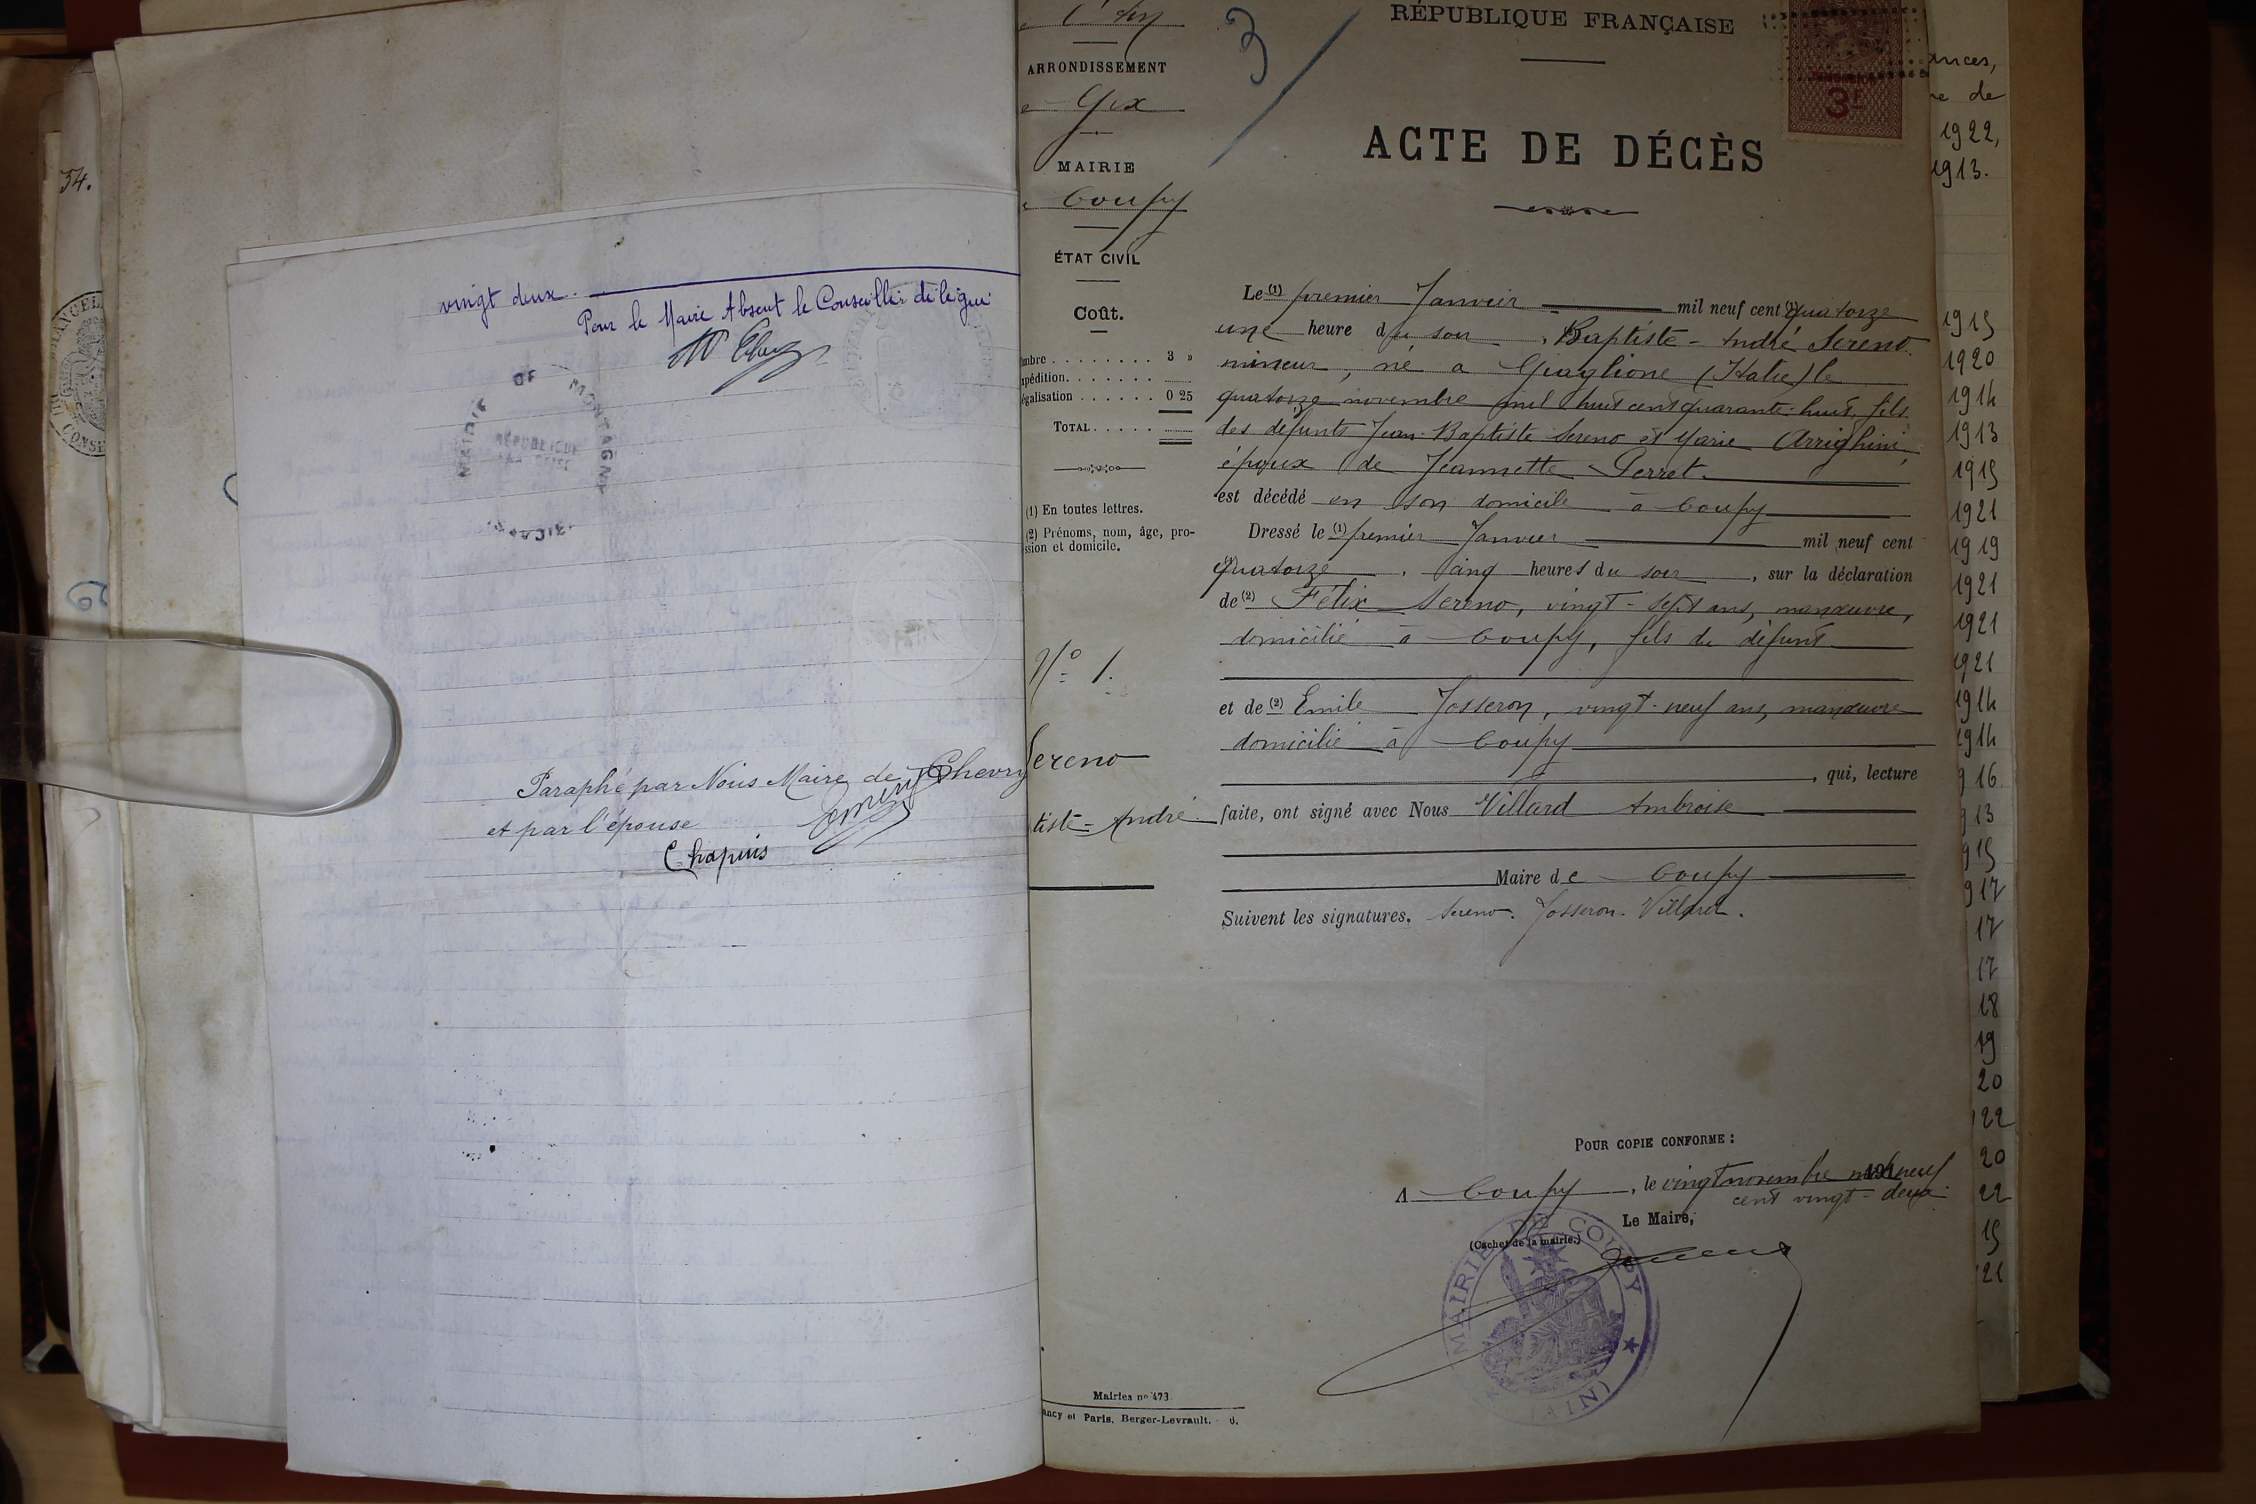 34.
vingt deux.
Pour le Maire Absent le Conseiller délégué
MAIRIE DE MONTAGN
RÉPUBLIQUE
Paraphé par Nous Maire de Chevry
et par l'épouse
Chapuis
l'Ain
ARRONDISSEMENT
Gex
MAIRIE
Coupy
ÉTAT CIVIL
Coût.
mbre . . . . . . . . . 3 »
pédition. . . . . . . .
galisation . . . . . . . 0 25
TOTAL. . . . .
(1) En toutes lettres.
(2) Prénoms, nom, âge, pro-
ssion et domicile.
No 1.
Sereno
tiste-André
Mairies no 473
ancy et Paris, Berger-Levrault.
3
RÉPUBLIQUE FRANÇAISE
3F
ACTE DE DÉCÈS
Le (1) premier Janvier mil neuf cent (1) quatorze
une heure du soir, (2) Baptiste-André Sereno
mineur, né à Giaglione (Italie) le
quatorze novembre mil huit cent quarante-huit, fils
des défunts Jean-Baptiste Sereno et Marie Arrighini,
époux de Jeannette Perret.
est décédé en son domicile à Coupy
Dressé le (1) premier Janvier mil neuf cent
quatorze, cinq heures du soir, sur la déclaration
de (2) Félix Sereno, vingt-sept ans, manœuvre,
domicilié à Coupy, fils du défunt
et de (2) Emile Josseron, vingt-neuf ans, manœuvre
domicilié à Coupy
, qui, lecture
faite, ont signé avec Nous Villard Ambroise
Maire de Coupy
Suivent les signatures. Sereno. Josseron. Villard.
POUR COPIE CONFORME :
A Coupy, le vingt novembre mil neuf
cent vingt-deux
Le Maire,
(Cachet de la mairie.)
MAIRIE DE COUPY
(AIN)
ances,
e de
1922,
1913.
1915
1920
1914
1913
1915
1921
1919
1921
1921
1921
1914
1914
916
913
915
917
17
17
18
19
20
22
20
22
15
21